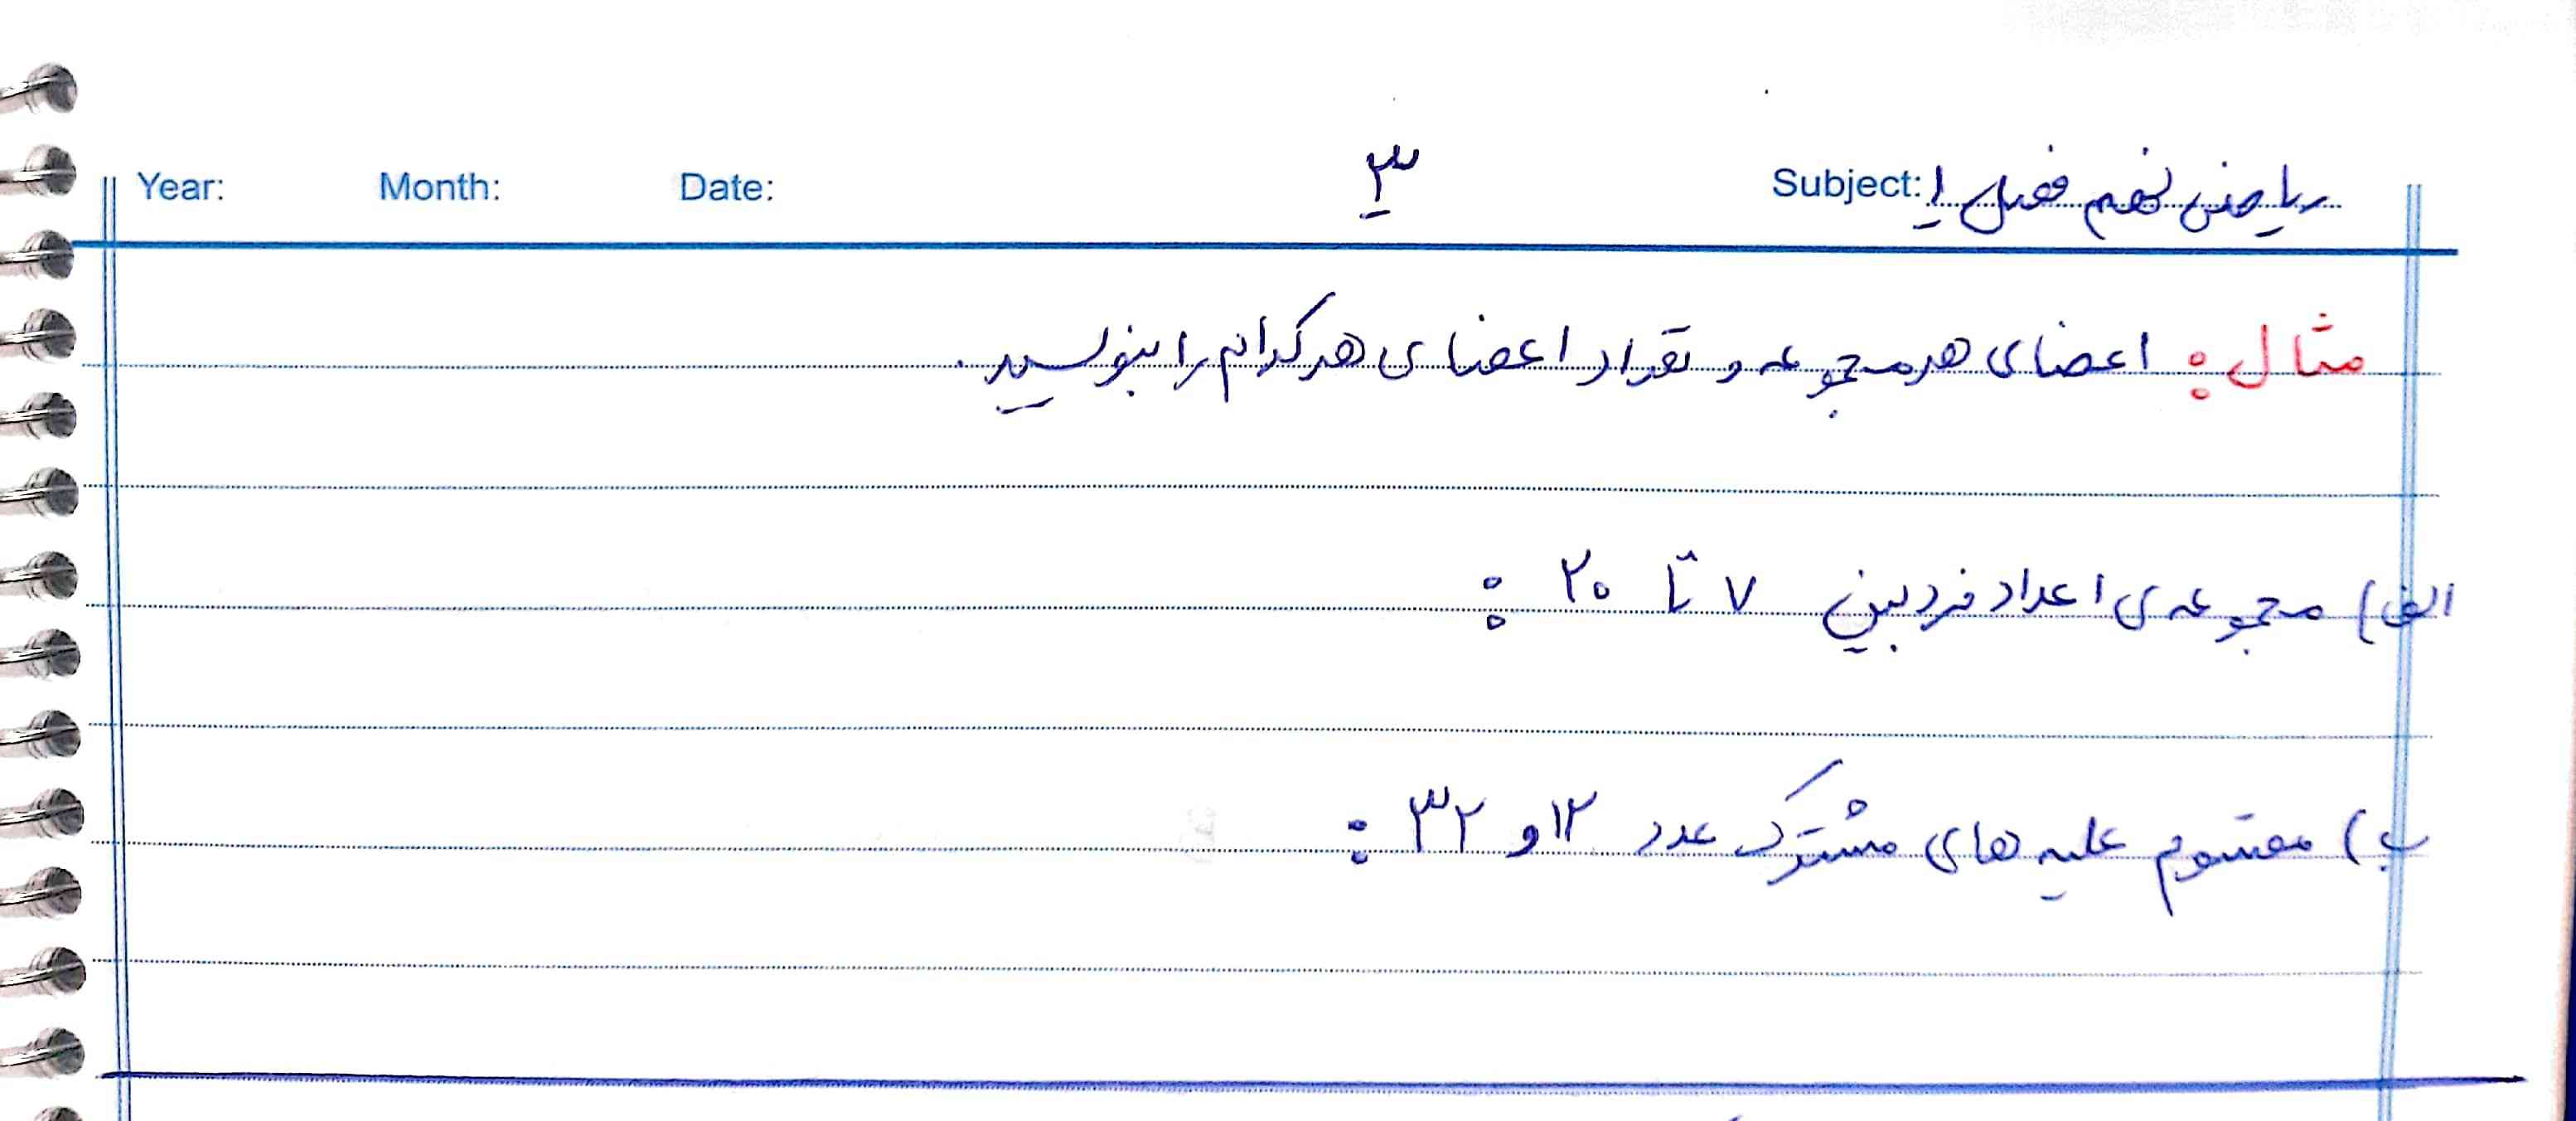 Year: Month: Date: ۳ Subject: ریاضی نهم فصل ۱
مثال: اعضای هر مجموعه و تعداد اعضای هر کدام را بنویسید.
الف) مجموعه ی اعداد فرد بین ۷ تا ۲۰ :
ب) مقسوم علیه های مشترک عدد ۱۲ و ۳۲ :